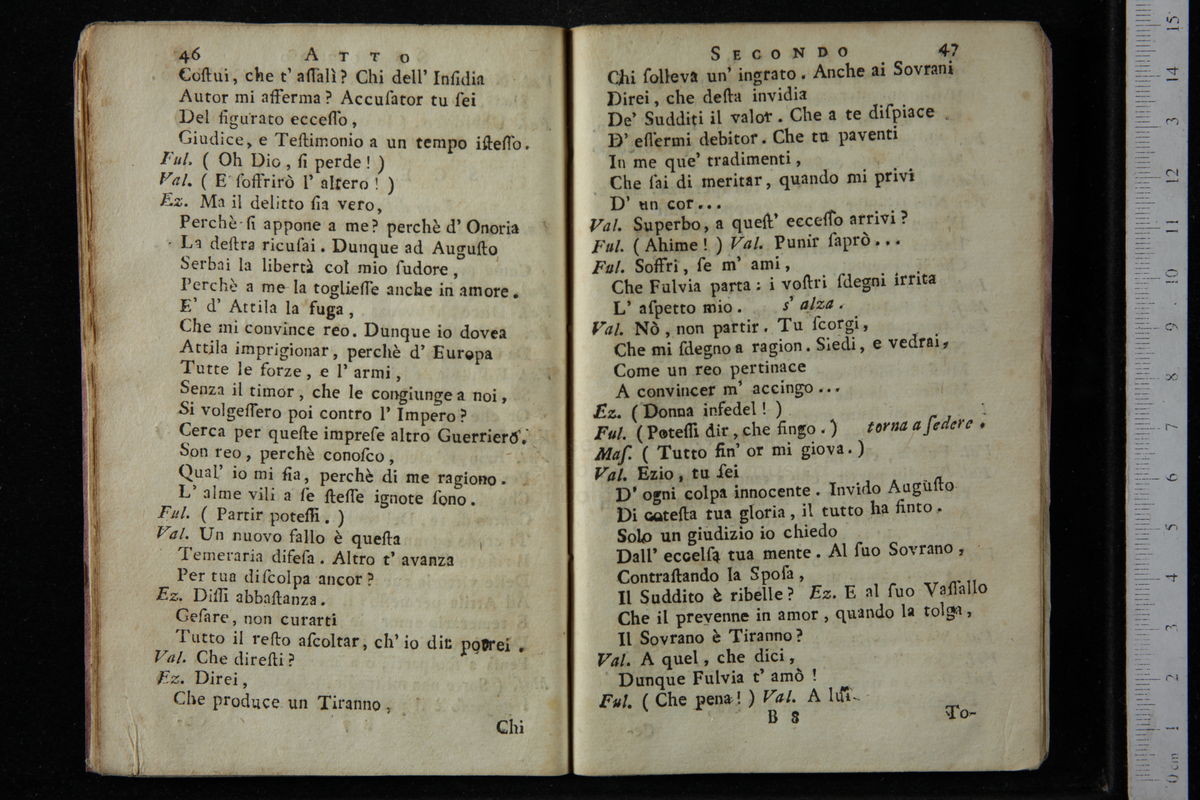 46 ATTO
Coſtui, che t' aſſalì? Chi dell' Inſidia
Autor mi afferma? Accuſator tu ſei
Del figurato ecceſſo,
Giudice, e Teſtimonio a un tempo iſteſſo.
Ful. ( Oh Dio, ſi perde! )
Val. ( E ſoffrirò l' altero! )
Ez. Ma il delitto ſia vero,
Perchè ſi appone a me? perchè d' Onoria
La deſtra ricuſai. Dunque ad Auguſto
Serbai la libertà col mio ſudore,
Perchè a me la toglieſſe anche in amore.
E' d' Attila la fuga,
Che mi convince reo. Dunque io dovea
Attila imprigionar, perchè d' Europa
Tutte le forze, e l' armi,
Senza il timor, che le congiunge a noi,
Si volgeſſero poi contro l' Impero?
Cerca per queſte impreſe altro Guerriero.
Son reo, perchè conoſco,
Qual' io mi ſia, perchè di me ragiono.
L' alme vili a ſe ſteſſe ignote ſono.
Ful. ( Partir poteſſi. )
Val. Un nuovo fallo è queſta
Temeraria difeſa. Altro t' avanza
Per tua diſcolpa ancor?
Ez. Diſſi abbaſtanza.
Ceſare, non curarti
Tutto il reſto aſcoltar, ch' io dir potrei.
Val. Che direſti?
Ez. Direi,
Che produce un Tiranno,
Chi
SECONDO 47
Chi ſolleva un' ingrato. Anche ai Sovrani
Direi, che deſta invidia
De' Sudditi il valor. Che a te diſpiace
D' eſſermi debitor. Che tu paventi
In me que' tradimenti,
Che ſai di meritar, quando mi privi
D' un cor...
Val. Superbo, a queſt' ecceſſo arrivi?
Ful. ( Ahime! ) Val. Punir ſaprò...
Ful. Soffri, ſe m' ami,
Che Fulvia parta: i voſtri ſdegni irrita
L' aſpetto mio. s' alza.
Val. Nò, non partir. Tu ſcorgi,
Che mi ſdegno a ragion. Siedi, e vedrai,
Come un reo pertinace
A convincer m' accingo...
Ez. ( Donna infedel! )
Ful. ( Poteſſi dir, che fingo. ) torna a ſedere.
Maſ. ( Tutto fin' or mi giova. )
Val. Ezio, tu ſei
D' ogni colpa innocente. Invido Auguſto
Di coteſta tua gloria, il tutto ha finto.
Solo un giudizio io chiedo
Dall' eccelſa tua mente. Al ſuo Sovrano,
Contraſtando la Spoſa,
Il Suddito è ribelle? Ez. E al ſuo Vaſſallo
Che il prevenne in amor, quando la tolga,
Il Sovrano è Tiranno?
Val. A quel, che dici,
Dunque Fulvia t' amò!
Ful. ( Che pena! ) Val. A lui
B 8 To-